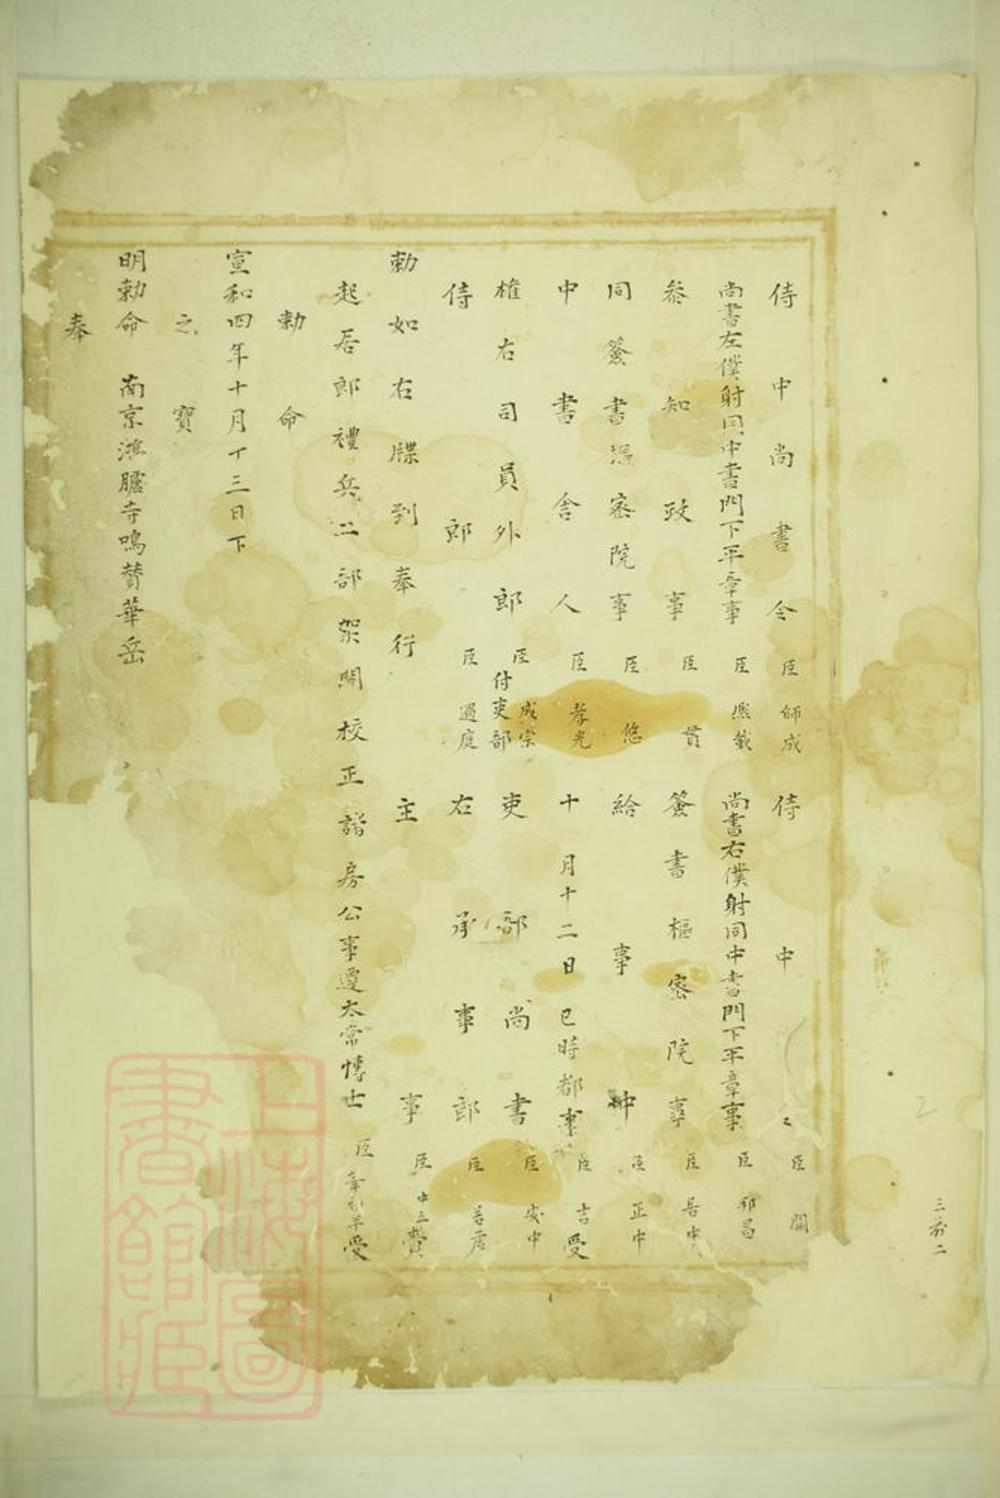 侍中尚書令臣師成侍中臣閱
尚書左僕射同中書門下平章事臣熙載尚書右僕射同中書門下平章事臣邦昌
參知政事臣貫簽書樞密院事臣居中
同簽書樞密院事臣悠給事中臣正中
中書舍人臣孝光十月十二日巳時都事臣吉受
權右司員外郎臣成宗付吏部吏部尚書臣安中
侍郎臣過庭右承事郎臣
勅如右牒到奉行主事臣中立贊
起居郎禮兵二部架閣校正諸房公事遷太常博士臣受
勅命
宣和四年十月十三日下
之寶
明勅命南京鴻臚寺鳴贊華岳
奉
三
二
上海圖書館藏